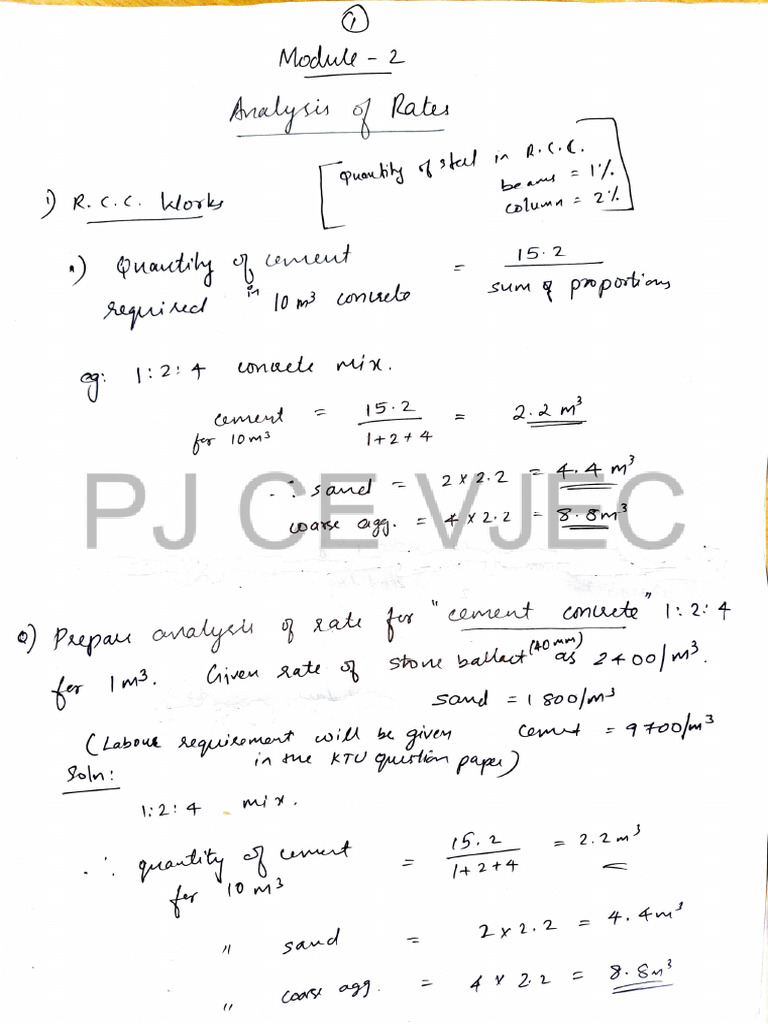 1
Module - 2
Analysis of Rates
[Quantity of steel in R.C.C.
beams = 1%
column = 2%]
1) R.C.C. Works
a) Quantity of cement required in 10 m³ concrete = 15.2 / sum of proportions
eg: 1:2:4 concrete mix.
cement for 10 m³ = 15.2 / 1+2+4 = 2.2 m³
∴ sand = 2 x 2.2 = 4.4 m³
coarse agg. = 4 x 2.2 = 8.8 m³
PJ CE VJEC
Q) Prepare analysis of rate for "cement concrete" 1:2:4
for 1 m³. Given rate of stone ballast (40mm) as 2400/m³.
sand = 1800/m³
(Labour requirement will be given cement = 9700/m³
in the KTU question paper)
Soln:
1:2:4 mix.
∴ quantity of cement for 10 m³ = 15.2 / 1+2+4 = 2.2 m³
" sand = 2 x 2.2 = 4.4 m³
" coarse agg. = 4 x 2.2 = 8.8 m³